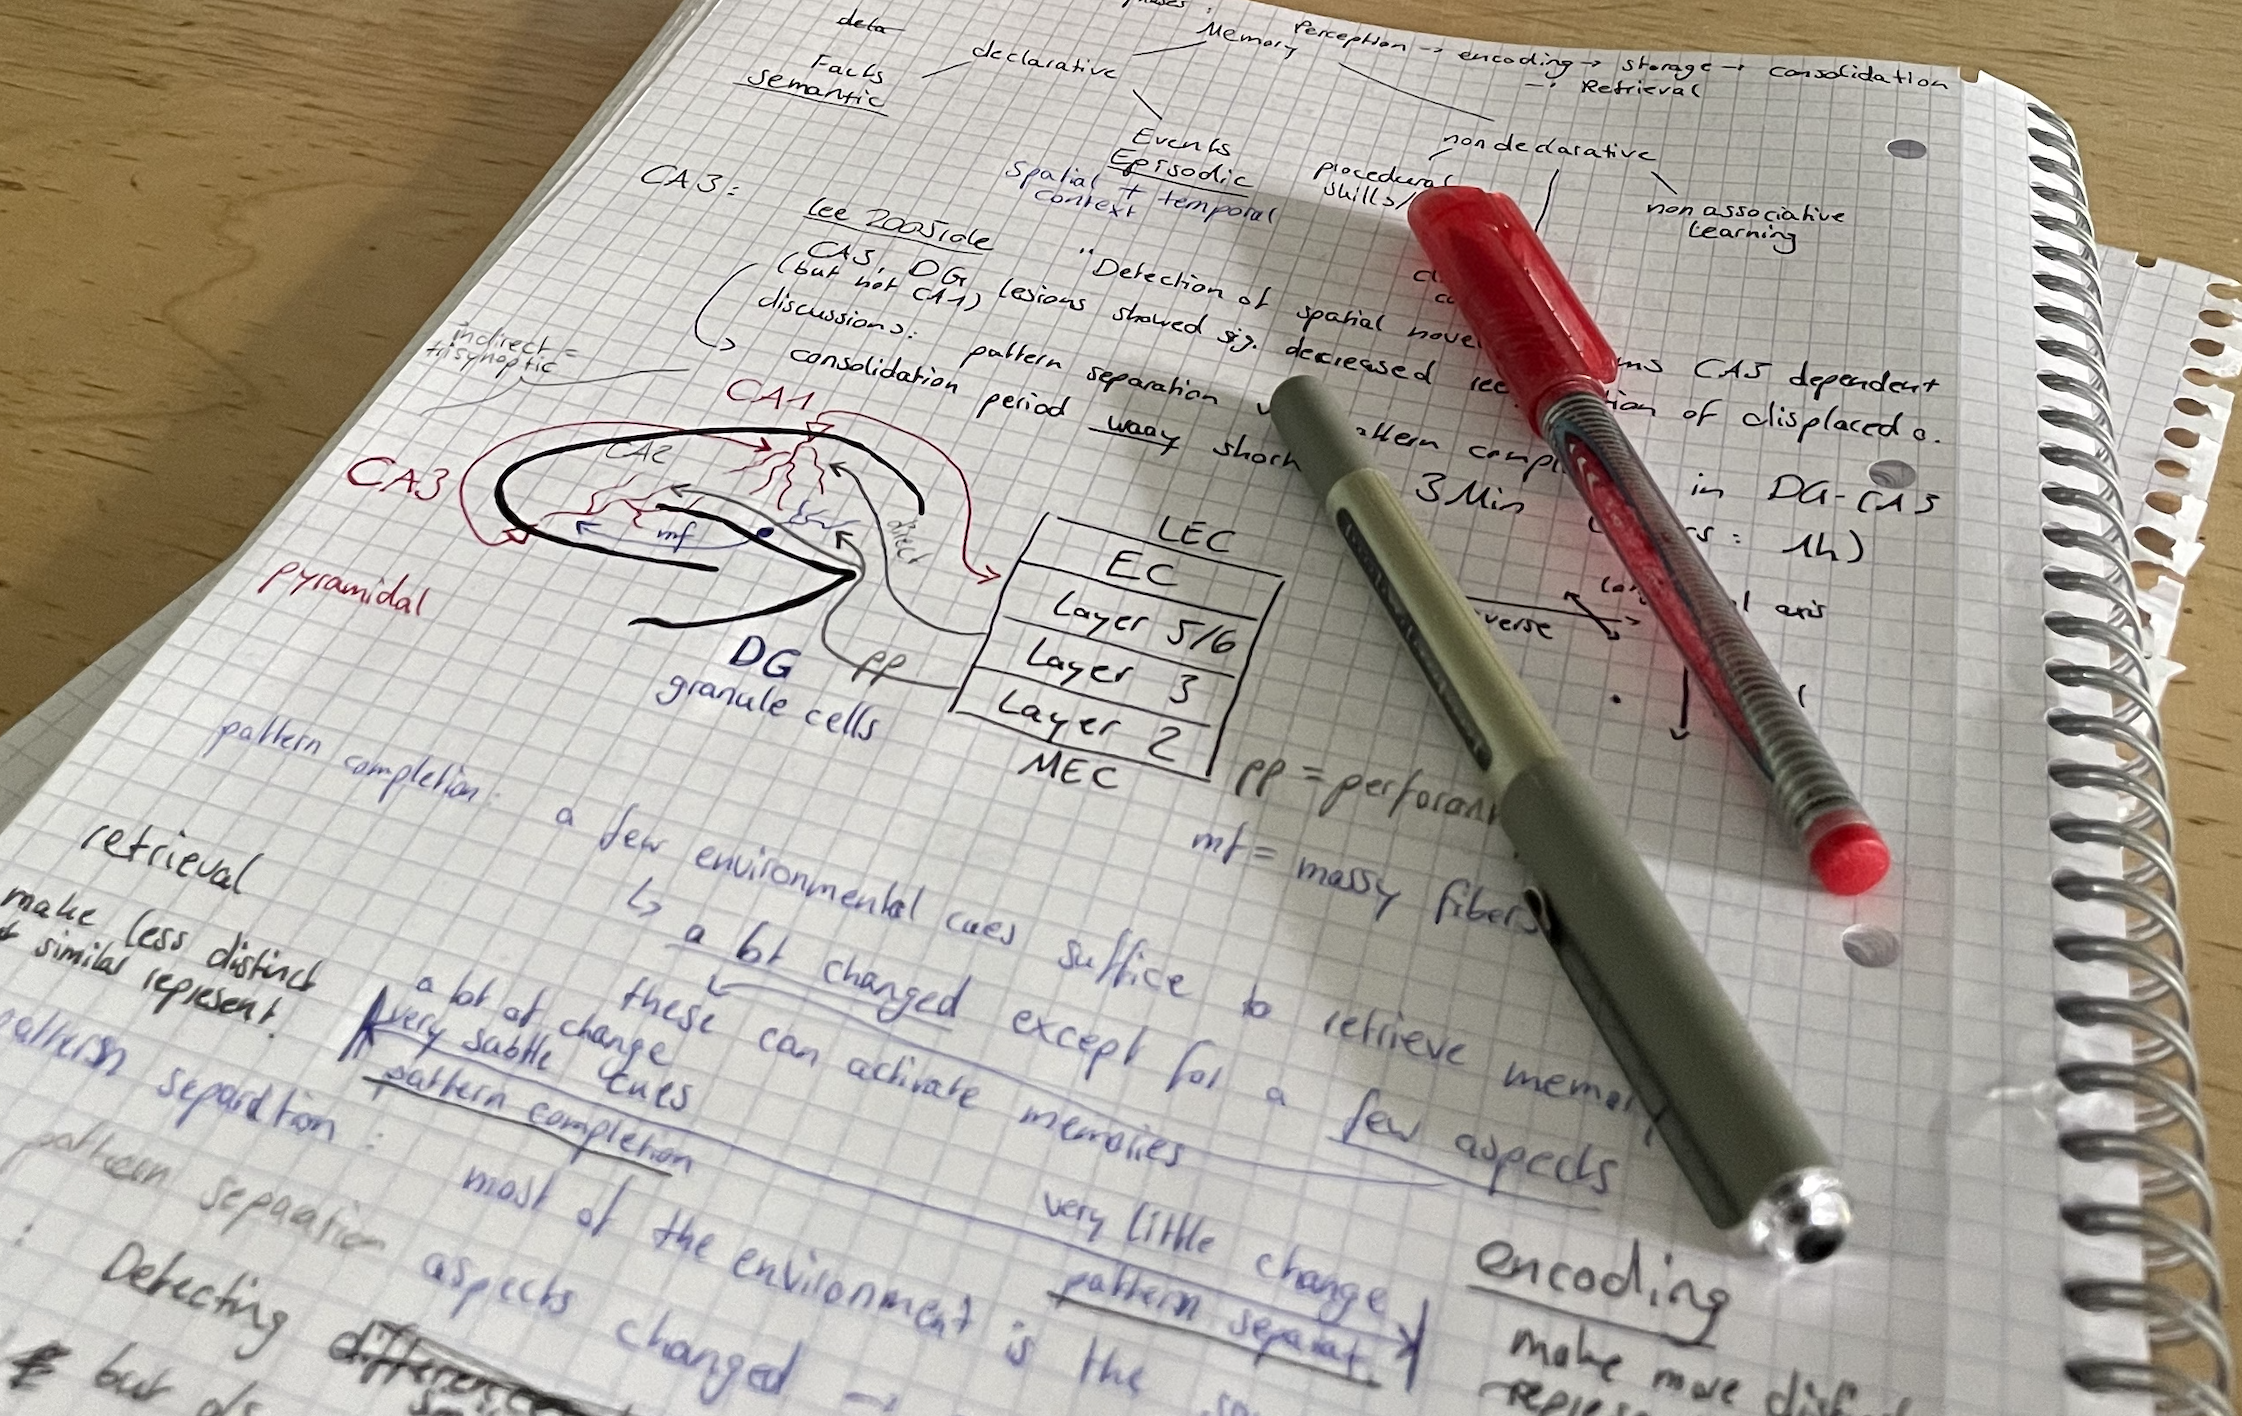 Memory
Perception → encoding → storage → consolidation
→ Retrieval
deta
declarative
Facts
semantic
Events
Episodic
spatial + temporal
context
nondeclarative
procedural
skills/
non associative
learning
CA3:
Lee 2005
"Detection of spatial
CA3 dependent
CA3, DG lesions showed sig. decreased
of displaced o.
(but not CA1)
discussions: pattern separation
in DG-CA3
consolidation period waay short
3 Min
1h)
indirect =
trisynaptic
CA1
CA2
CA3
mf
direct
pyramidal
DG
granule cells
pp
LEC
EC
Layer 5/6
Layer 3
Layer 2
MEC
axis
pp =
mf = mossy fibers
pattern completion: a few environmental cues suffice to retrieve memory
↳ a lot changed except for a few aspects
these can activate memories
retrieval
make less distinct
similar represent.
a lot of change
very subtle cues
pattern completion
very little change
pattern separat.
encoding
make more
pattern separation: most of the environment is the
pattern separation
aspects changed →
: Detecting
but